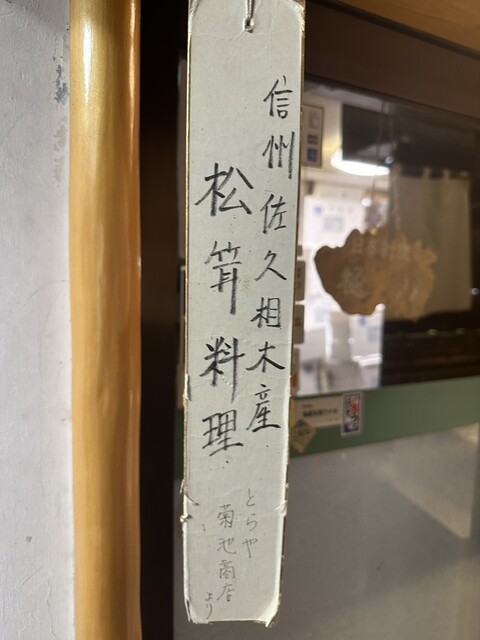 信州佐久相木産
松茸料理
とらや
菊池商店より